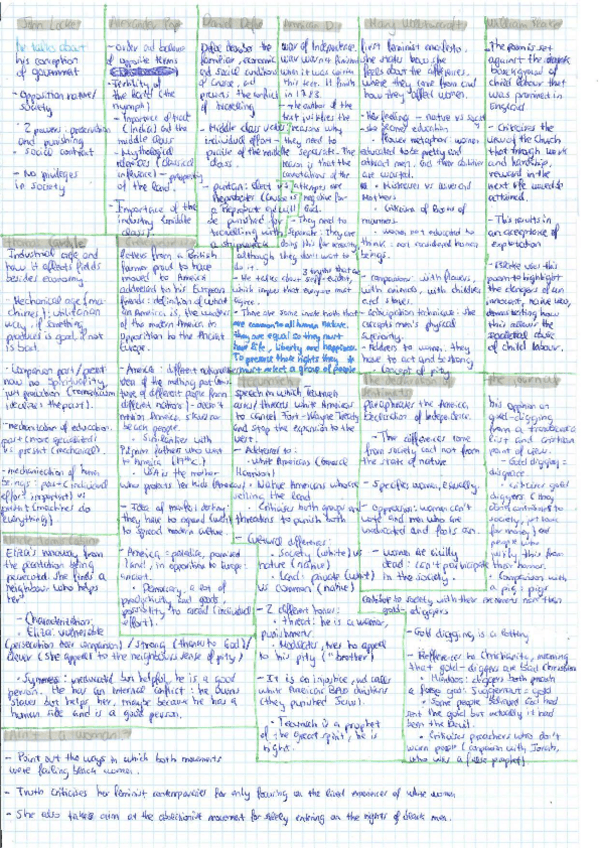 John Locke
he talks about
his conception
of government
- opposition nature/
society
- 2 powers: preservation
and punishing
- social contract
- No privileges
in society
Alexander Pope
- order and balance
of opposite terms
- Fertility of
the Earth (the
nymph)
- Importance of trade
(India) and the
middle class
- Mythological
references (classical
influence) - prosperity
of the land.
- Importance of the
industry (middle
class)
Daniel Defoe
Defoe describes the
familiar, economic
and social conditions
of Crusoe, and
presents the conflict
of travelling
- Middle class values:
individual effort
praise of the middle
class.
- puritan: elect vs
Reprobate (Crusoe is
a reprobate and will
be punished for
travelling with
a shipwreck
American D
war of Independence.
war was not finished
when it was written
this text. It finish
in 1783.
- the author of the
text justifies the
reasons why
they need to
be separate. The
reason is that the
connotations of the
negative for
God.
- They need to
separate. They are
doing this for necessity
although they don't want to
do it.
- He talks about self-evident,
which implies that everyone must
agree.
- There are some innate truth that
are common to all human nature.
They are equal so they must
have life, liberty and happiness.
To preserve those rights they
must select a group of people
Mary Wollstonecraft
first feminist manifesto.
She talks how she
feels about the differences,
where they come from and
how they affect women.
- her feelings - nature vs society
- she blames education
- flower metaphor: women
educated to be pretty and
attract men, and their abilities
are wasted.
- Mistresses vs wives and
Mothers
- Criticism of Books of
manners
- women not educated to
think: not considered human
beings.
- comparisons: with flowers,
with animals, with children
and slaves.
- anticipation technique: she
accepts men's physical
superiority.
- Address to women: they
have to act and be strong
- concept of pity
William Blake
- The poem is set
against the
background of
child labour that
was prominent in
England
- Criticizes the
view of the Church
that through work
and hardship,
reward in the
next life would be
attained.
- This results in
an acceptance of
exploitation
- Blake uses this
poem to highlight
the dangers of an
innocent, naive view,
demonstrating how
this allows the
societal abuse
of child labour.
Thomas Carlyle
Industrial age and
how it affects fields
besides economy.
- Mechanical age (ma-
chines): utilitarian
way, if something
produces is good, if not
is bad.
- Comparison past/present
now no spirituality,
just production (romanticism
idealizes the past).
- mechanization of education.
past (more specialized)
vs present (mechanical).
- mechanization of human
beings: past (individual
effort important) vs
present (machine do
everything)
letters from a British
farmer proud to have
moved to America
addressed to his European
friends: definition of what
an America is, the
of the modern American in
opposition to the Ancient
Europe.
- Similarities with
Pilgrim Fathers who went
to America
- USA is the mother
who protects her kids
- Idea of market
they have to expand
to spread modern culture.
- America = paradise, promised
land, in opposition to Europe:
ancient.
- Democracy, a lot of
productivity and goods,
possibility to succeed (individual
effort).
Tecumseh
speech in which Tecumseh
asks/threats white Americans
to cancel Fort-Wayne Treaty
and stop the expansion to the
west.
- Addressed to:
- White Americans (General
Harrison)
- Native Americans who are
selling the land
- Criticises both groups and
threatens to punish both
- Cultural differences:
- Society (white) vs
nature (native)
- Land: private (white)
vs common (native)
- 2 different tones:
- threat: he is a warrior,
punishment.
- Moderator: tries to appeal
to his pity ("brother")
- It is an injustice, and calls
white Americans BAD christians
(they punished Jesus).
- Tecumseh is a prophet
of the great spirit, he is
right.
The declaration of
Sentiments
paraphrases the American
Declaration of Independence.
- The differences come
from society and not from
the state of nature
- Specifies women, equality.
- Oppression: women can't
vote and men who are
uneducated and fools can.
- women as civilly
dead: can't participate
in the society.
The journal
his opinion on
gold-digging
from a transcenden-
talist and christian
point of view.
- Gold digging =
disgrace.
- criticises gold
diggers (they
don't contribute to
society, just have
for money) and
people who
justify this from
their honour.
- Comparison with
a pig: pigs
contribute to society with their manners more than
gold-diggers
- Gold digging is a lottery
- References to Christianity, meaning
that gold-diggers are bad Christian
- Hindoos: diggers both preach
a false god. Juggernaut = gold
- Some people believed God had
sent the gold but actually it had
been the Devil.
- Criticises preachers who don't
warn people (comparison with Jonah,
who was a false prophet)
Eliza's runaway from
the plantation being
persecuted. She finds a
neighbour who helps
her
- Characterization:
- Eliza: vulnerable
(persecution, her companion) / strong (thanks to God) /
clever (she appeals to the neighbours sense of pity)
- Symmes: uneducated but helpful, he is a good
person. He has an internal conflict: he owns
slaves but helps her, maybe because he has a
human side and is a good person.
Ain't I a woman
- Point out the ways in which both movements
were failing black women.
- Truth criticizes her feminist contemporaries for only focusing on the lived experiences of white women
- She also takes aim at the abolitionist movement for solely entering on the rights of black men.